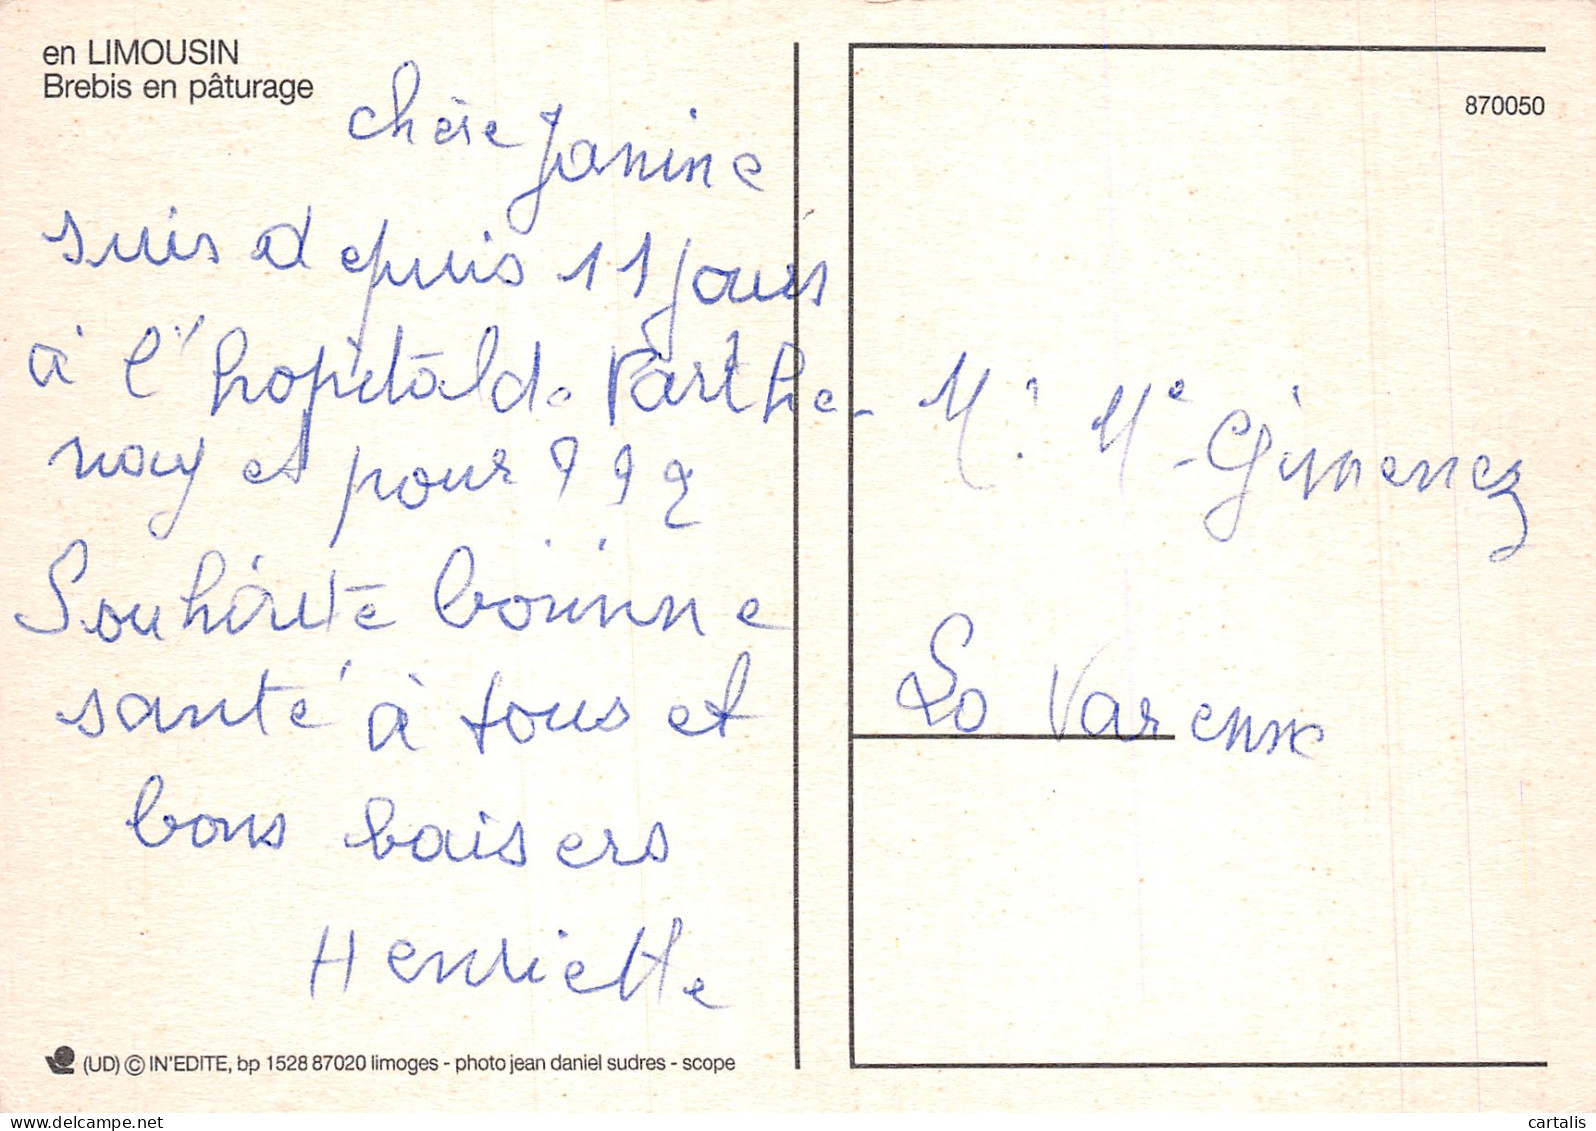 en LIMOUSIN
Brebis en pâturage
870050
chère Janine
suis depuis 11 jours
à l'hopital de Parthe-
nay et pour ???
Souhaite bonne
santé à tous et
bons baisers
Henriette
M. Me Gimenez
La Varenne
(UD) © IN'EDITE, bp 1528 87020 limoges - photo jean daniel sudres - scope
cartalis